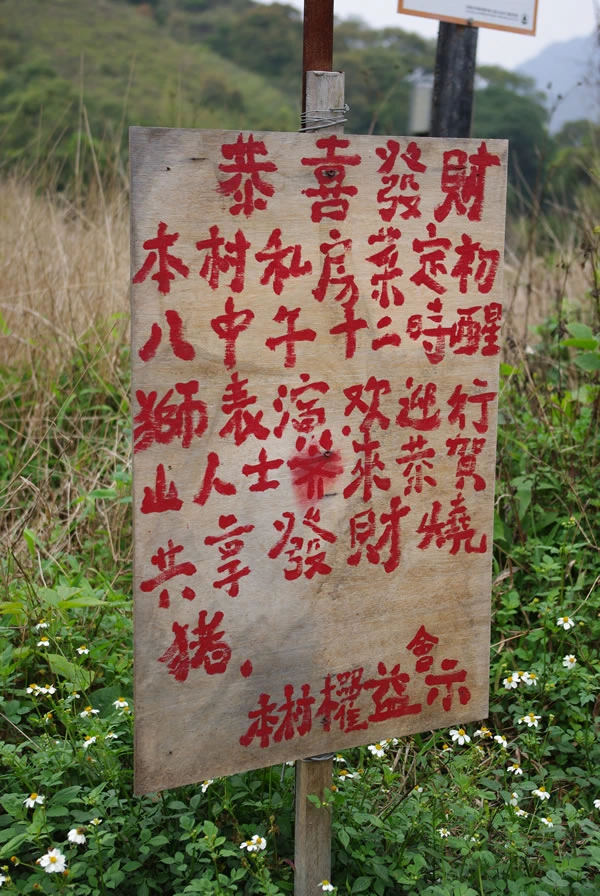 恭喜發財
本村私房菜定初
八中午十二時醒
獅表演歡迎行
山人士齐來恭賀
共享發財燒
猪.
本村權益會示